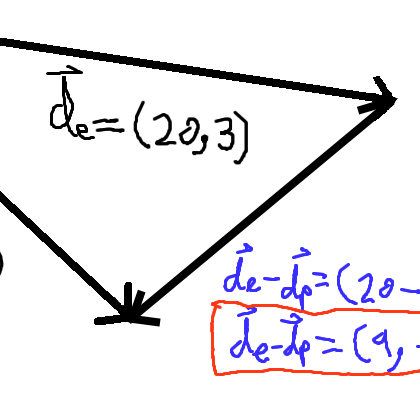 d⃗e = (20,3)
)
d⃗e - d⃗p = (20 -
d⃗e - d⃗p = (9, -